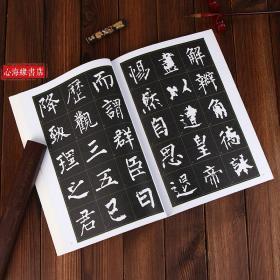 心海缘書店
解辨角德詠
盡以皇帝
惕然自思
而謂群臣曰
歷觀三五已
降致理之君